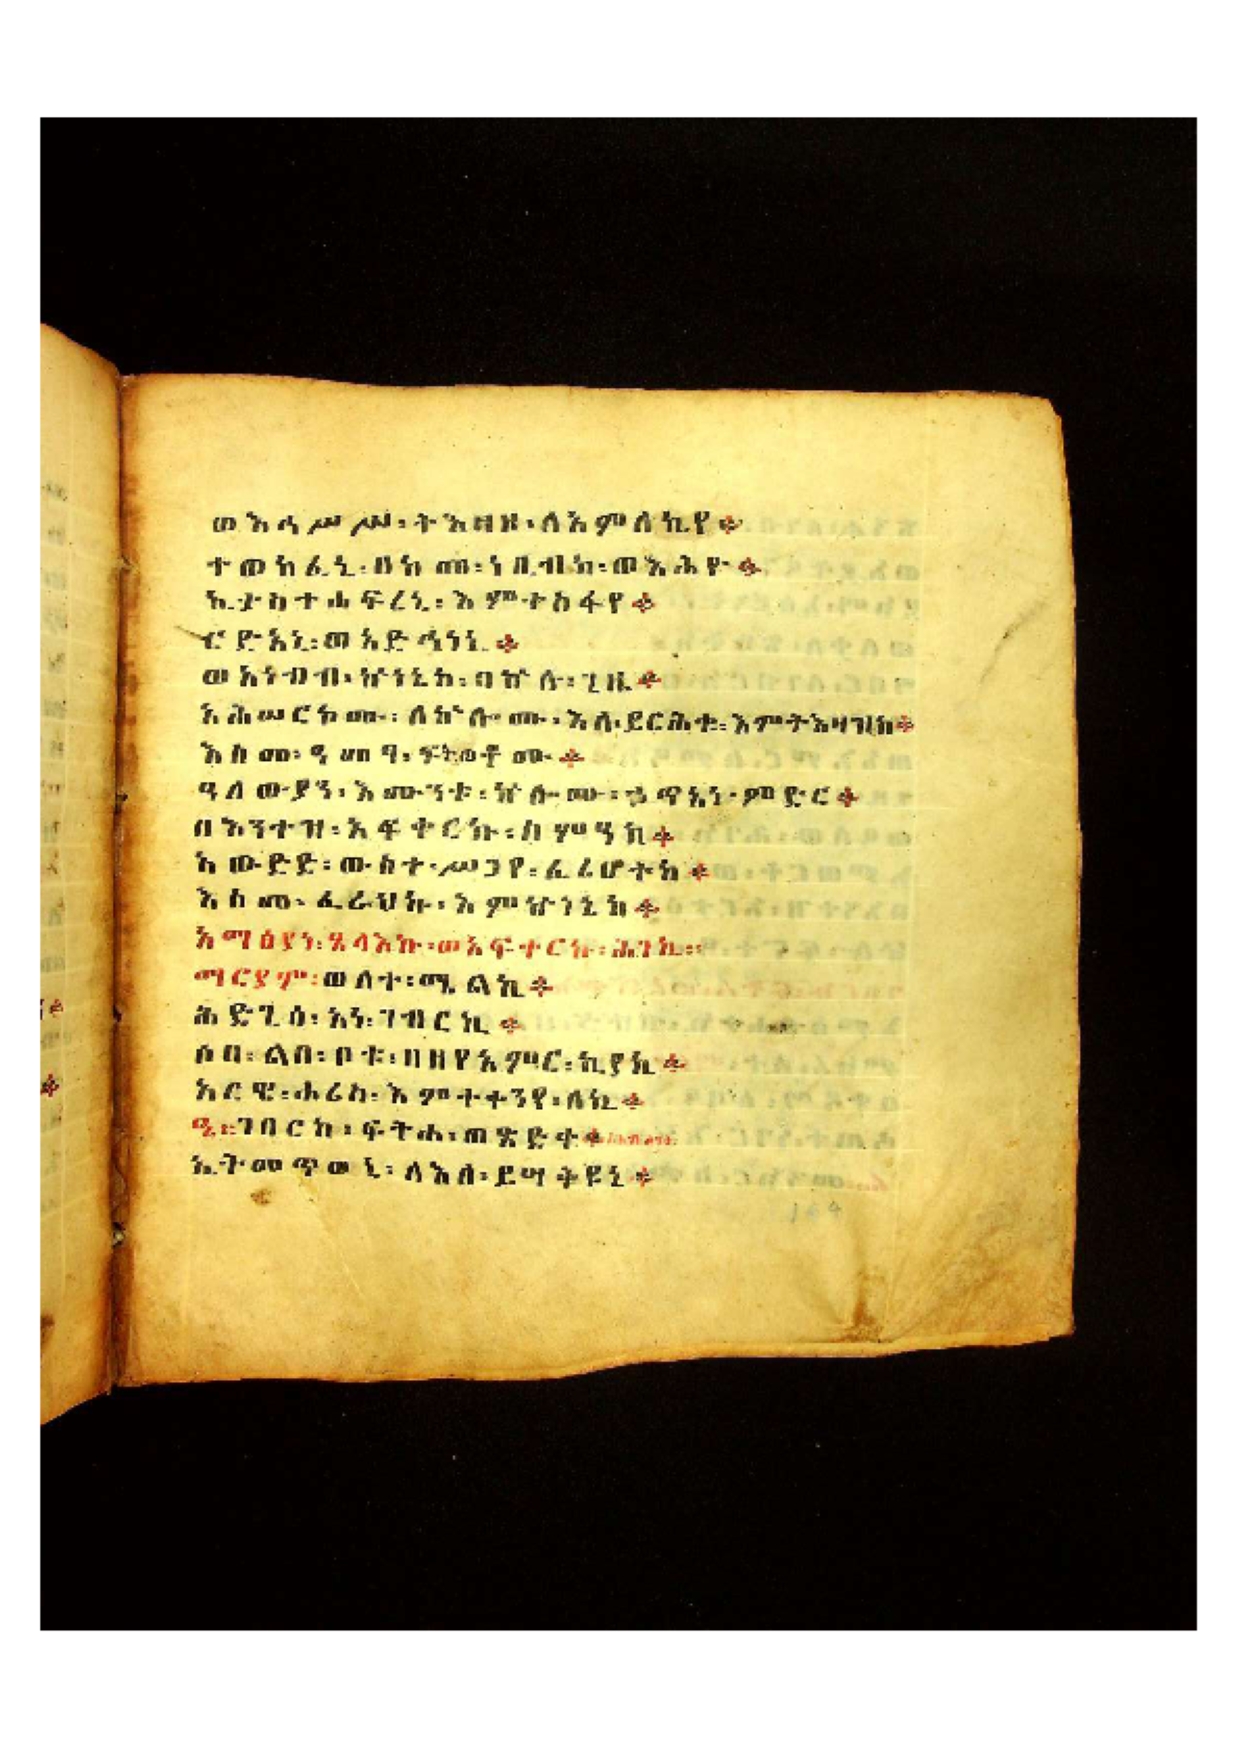 ወእኃሥሥ፡ትእዛዘ፡ለአምላኪየ፨
ተወከፈኒ፡በከመ፡ነቢብከ፡ወአሕዮ፨
ኢታስተሐፍረኒ፡እምተስፋየ፨
ርድአኒ፡ወአድኅነኒ፨
ወአነብብ፡ኵነኔከ፡በኵሉ፡ጊዜ፨
አሕሠርኮሙ፡ለኵሎሙ፡እለ፡ይርሕቁ፡እምትእዛዝከ፨
እስመ፡ዓመፃ፡ፍትወቶሙ፨
ዓለውያን፡እሙንቱ፡ኵሎሙ፡ኃጥአነ፡ምድር፨
በእንተዝ፡አፍቀርኩ፡ስምዓከ፨
አውድድ፡ውስተ፡ሥጋየ፡ፈሪሆተከ፨
እስመ፡ፈራህኩ፡እምኵነኔከ፨
አማዕያነ፡ጼላእኩ፡ወአፍቀርኩ፡ሕገከ፡፡
ማርያም፡ወለተ፡ሜልኪ፨
ሕድጊሰ፡አነ፡ገብርኪ፨
ሰብ፡ልበ፡ቦቱ፡በዘየአምር፡ኪያኪ፨
አርዌ፡ሐሪስ፡እምተቀንየ፡ለኪ፨
ዔ፡፡ገበርኩ፡ፍትሐ፡ወጽድቀ፨
ኢትመጥወኒ፡ለእለ፡ይሣቅዩኒ፨
164